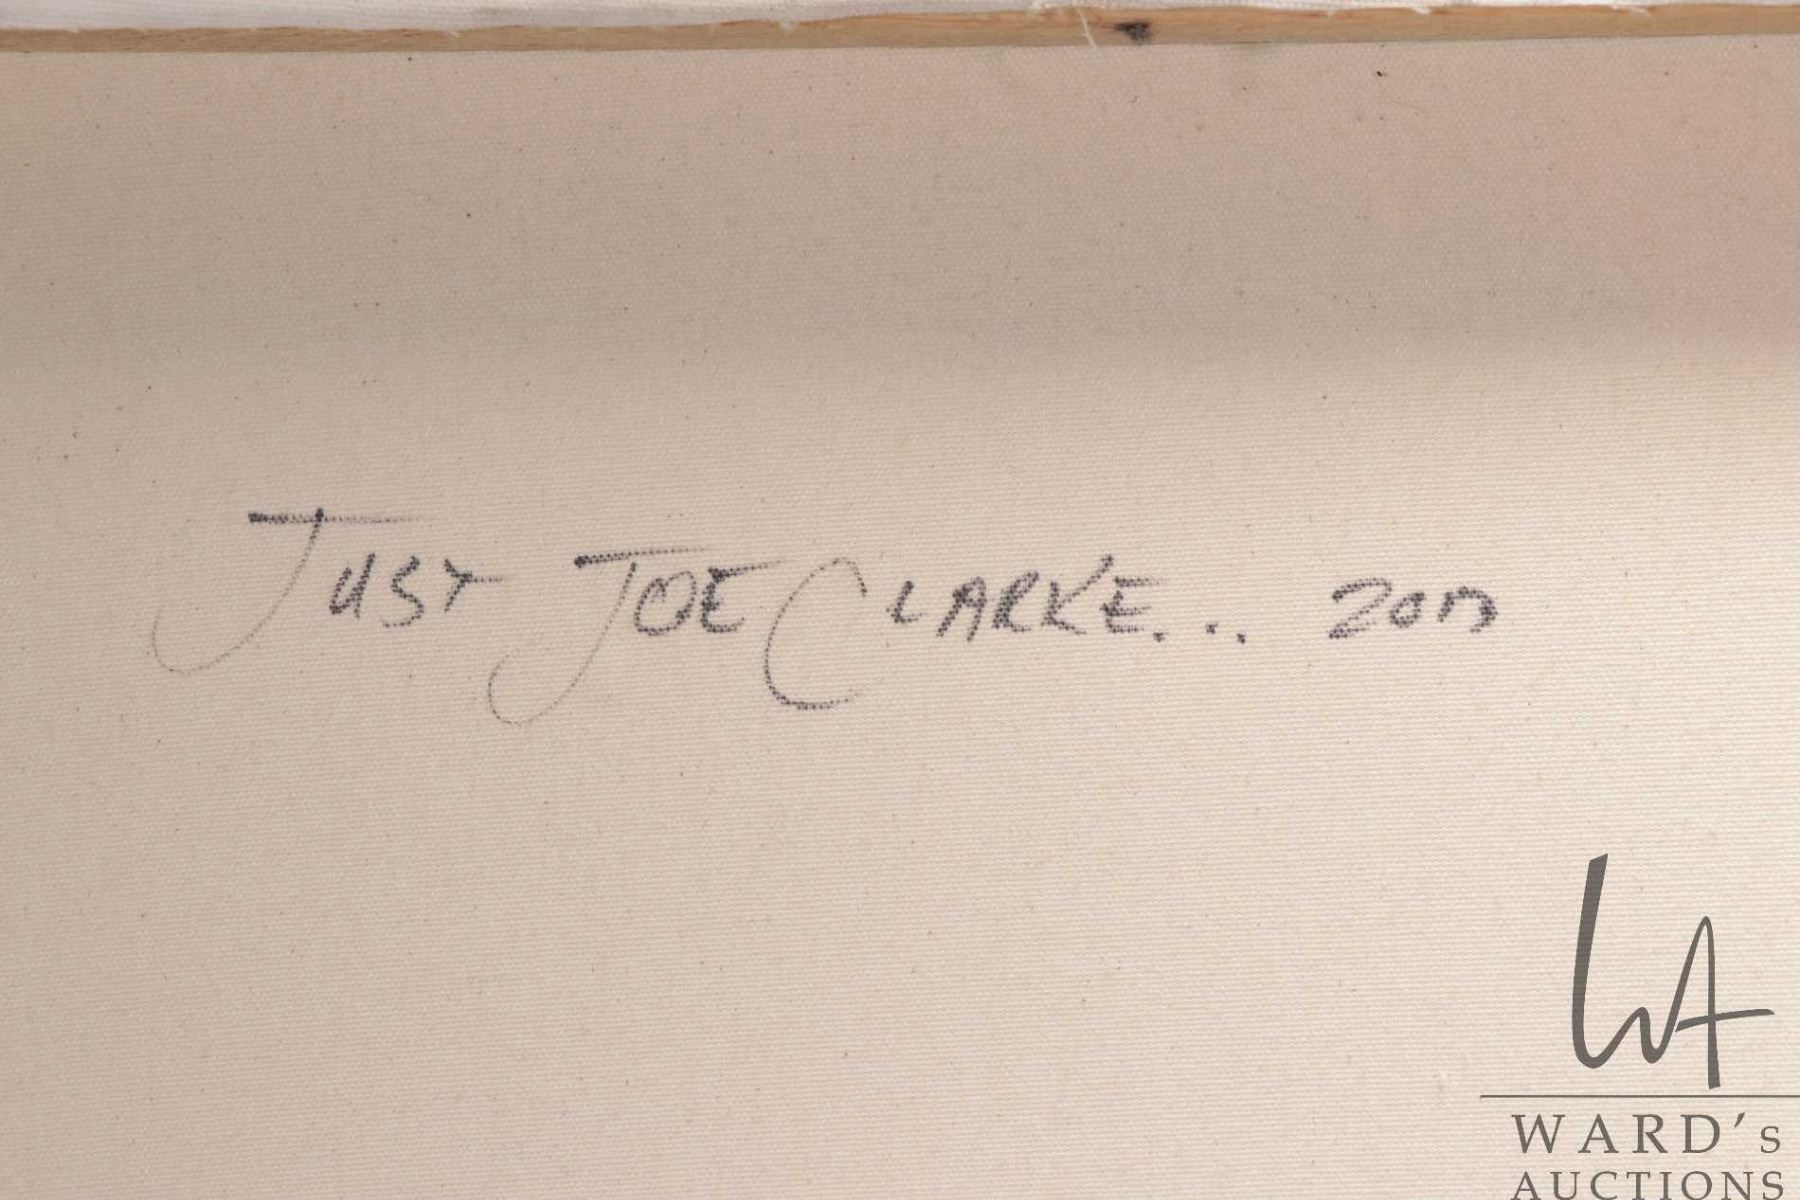 JUST JOE CLARKE...
WA
WARD's
AUCTIONS